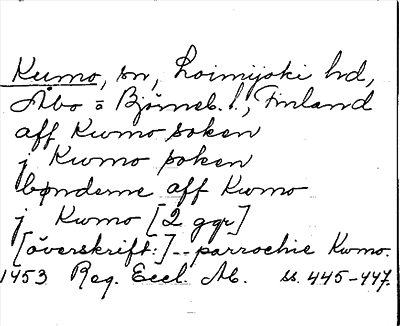 Kumo, sn, Loimijoki hd,
Åbo o Björneb. l., Finland
aff Kwmo soken
j Kwmo soken
bønderne aff Kwmo
j Kwmo [2 ggr]
[överskrift:] -- parrochie Kwmo.
1453 Reg. Eccl. Ab. ss. 445-447.